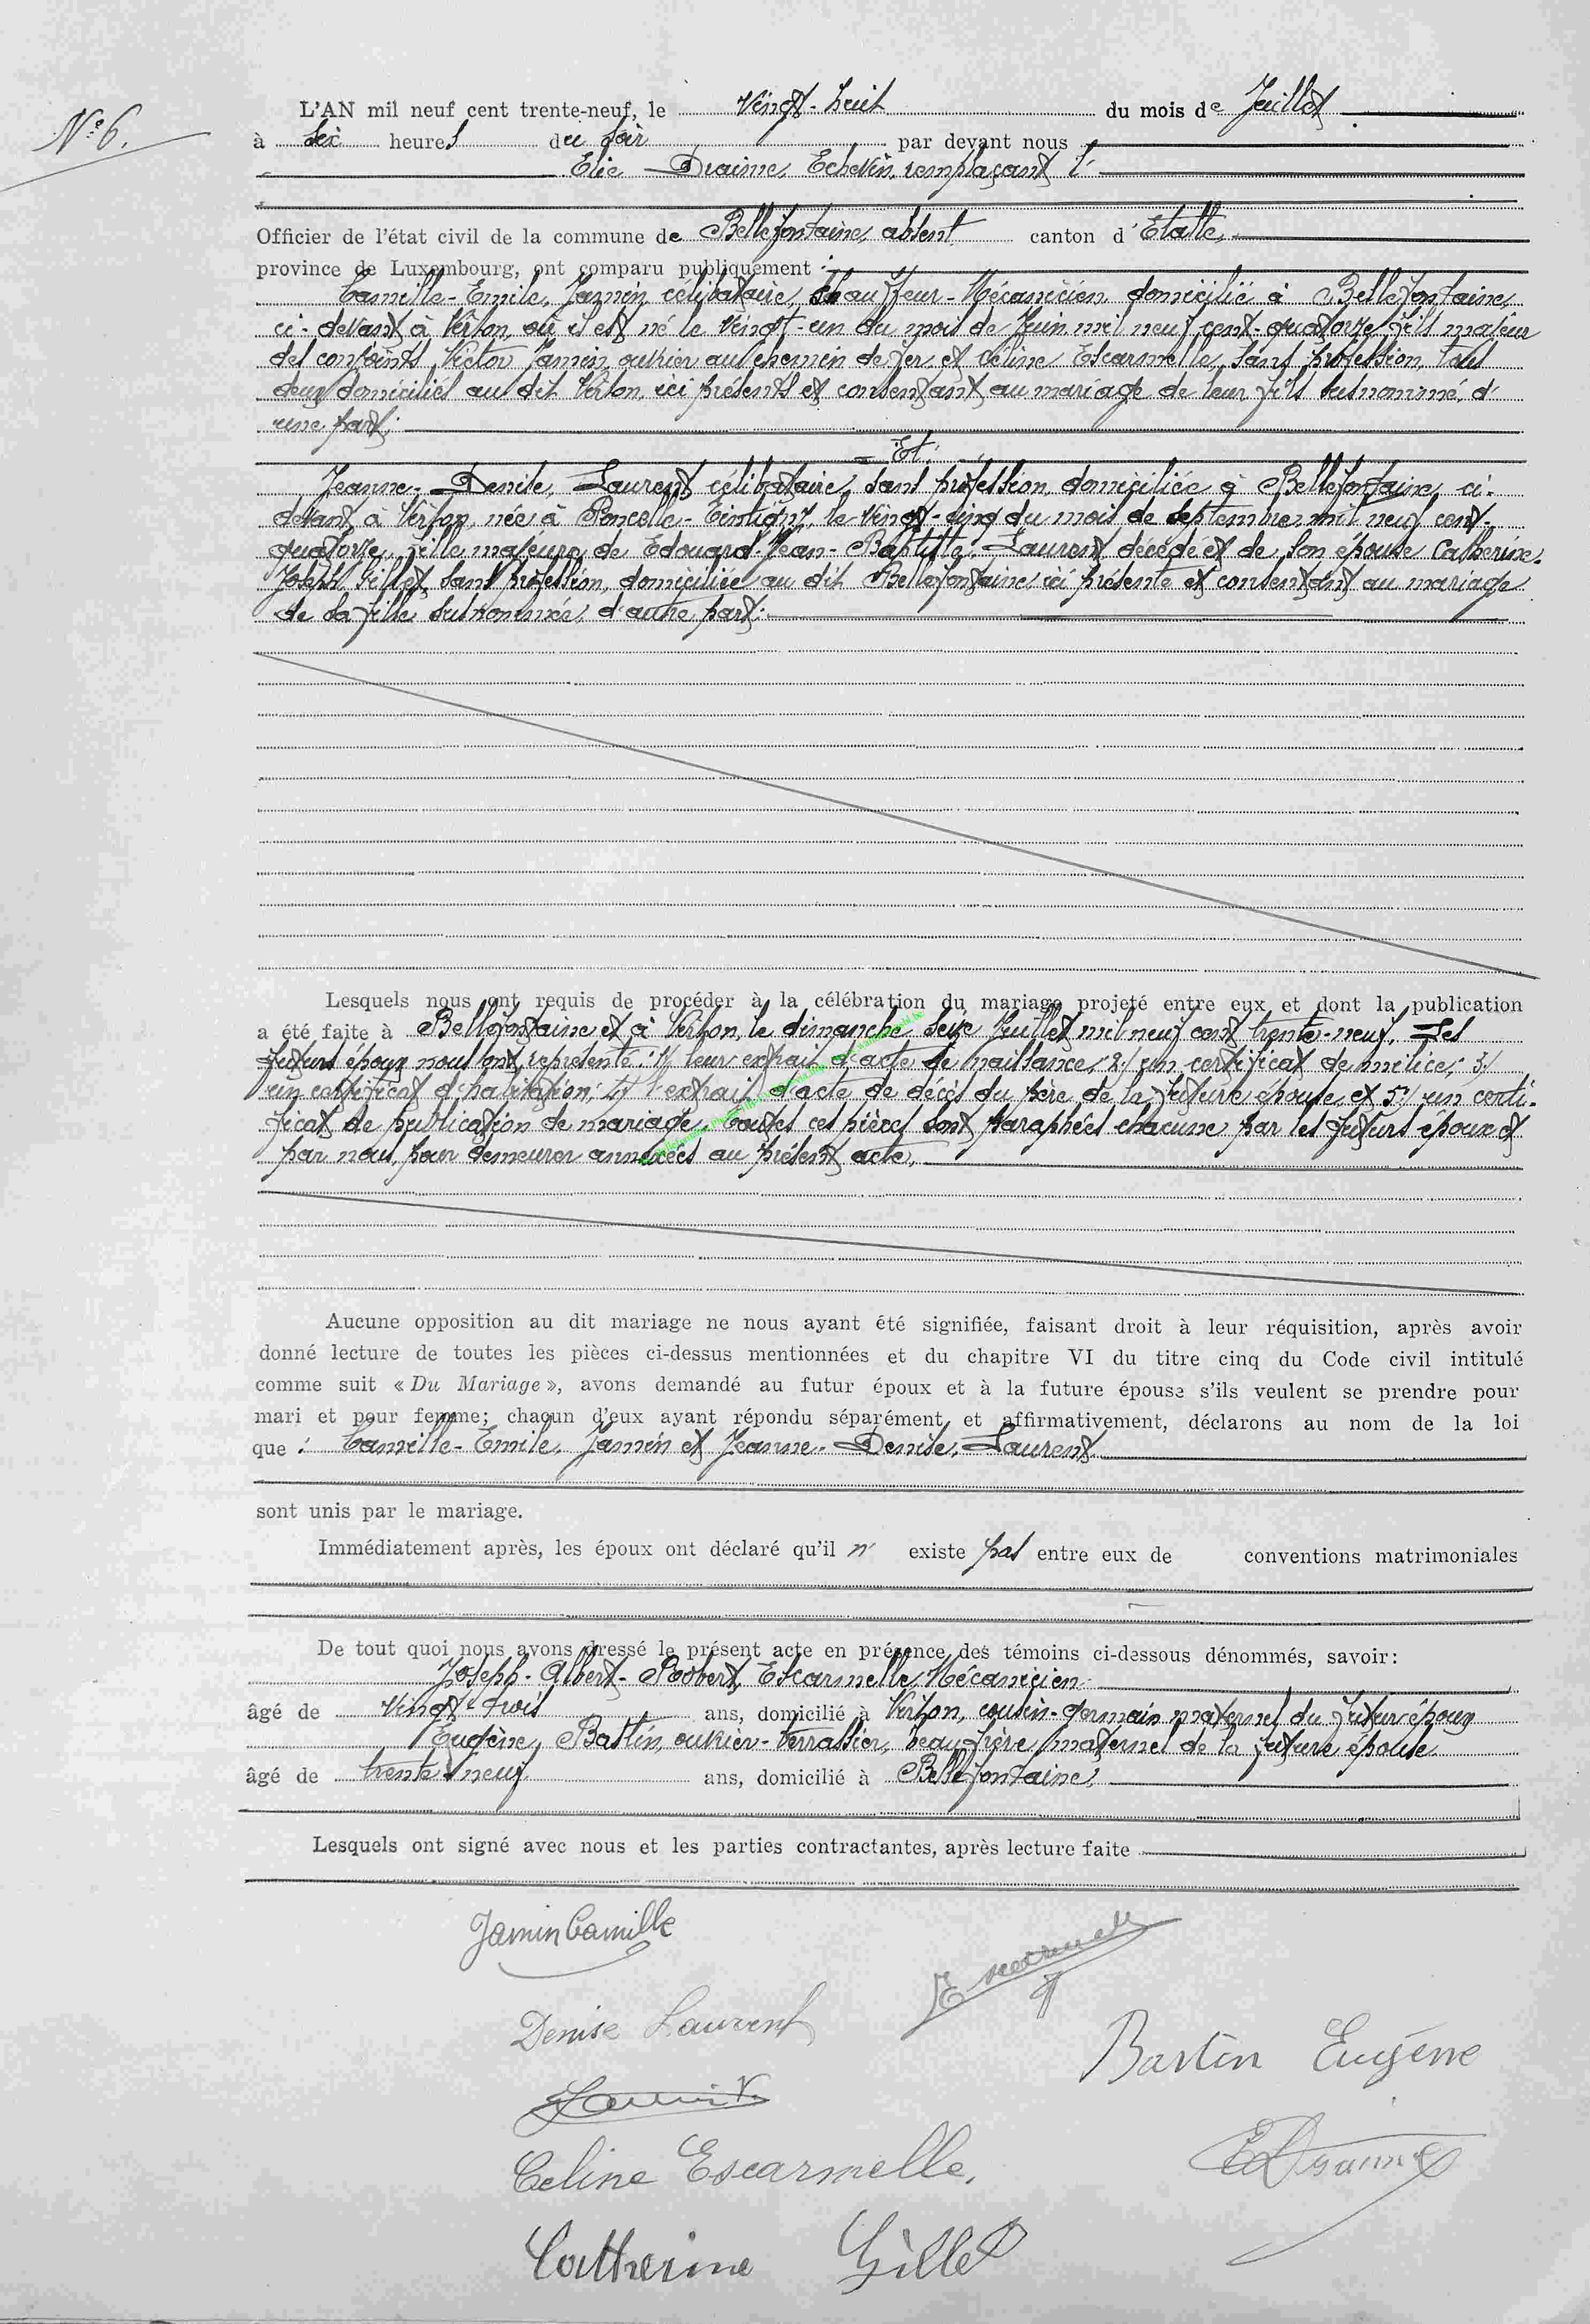 N° 6.
L'AN mil neuf cent trente-neuf, le vingt-huit du mois de Juillet
à six heures du soir par devant nous
Elie Draime, Echevin, remplaçant l'
Officier de l'état civil de la commune de Bellefontaine, absent canton d'Etalle,
province de Luxembourg, ont comparu publiquement :
Camille-Emile, Jamin, célibataire, chauffeur-Mécanicien domicilié à Bellefontaine,
ci-devant à Virton, où il est né le vingt-un du mois de Juin mil neuf cent-quatorze, fils majeur
des conjoints Victor Jamin, ouvrier au chemin de fer, et Céline Escarmelle, sans profession, tous
deux domiciliés au dit Virton, ici présents et consentant au mariage de leur fils susnommé, d'
une part;
Et:
Jeanne-Denise, Laurent, célibataire, sans profession, domiciliée à Bellefontaine, ci-
devant à Virton, née à Poncelle-Tintigny, le vingt-cinq du mois de septembre mil neuf cent-
quatorze, fille majeure de Edouard-Jean-Baptiste, Laurent, décédé et de son épouse Catherine-
Joseph Gillet, sans profession, domiciliée au dit Bellefontaine, ici présente et consentant au mariage
de sa fille susnommée, d'autre part:
Lesquels nous ont requis de procéder à la célébration du mariage projeté entre eux et dont la publication
a été faite à Bellefontaine et à Virton, le dimanche seize Juillet mil neuf cent trente-neuf. Les
futurs époux nous ont représenté: 1/ leur extrait d'acte de naissance; 2/ un certificat de milice; 3/
un certificat d'habitation; 4/ l'extrait d'acte de décès du père de la future épouse, et 5/ un certi-
ficat de publication de mariage. Toutes ces pièces sont paraphées chacune par les futurs époux et
par nous, pour demeurer annexées au présent acte.
Aucune opposition au dit mariage ne nous ayant été signifiée, faisant droit à leur réquisition, après avoir
donné lecture de toutes les pièces ci-dessus mentionnées et du chapitre VI du titre cinq du Code civil intitulé
comme suit « Du Mariage », avons demandé au futur époux et à la future épouse s'ils veulent se prendre pour
mari et pour femme; chacun d'eux ayant répondu séparément et affirmativement, déclarons au nom de la loi
que : Camille-Emile, Jamin et Jeanne-Denise, Laurent
sont unis par le mariage.
Immédiatement après, les époux ont déclaré qu'il n' existe pas entre eux de conventions matrimoniales
De tout quoi nous avons dressé le présent acte en présence des témoins ci-dessous dénommés, savoir:
Joseph-Albert-Robert, Escarmelle, Mécanicien
âgé de vingt-trois ans, domicilié à Virton, cousin-germain maternel du futur époux
Eugène, Bastin, ouvrier-terrassier, beau-frère maternel de la future épouse
âgé de trente-neuf ans, domicilié à Bellefontaine,
Lesquels ont signé avec nous et les parties contractantes, après lecture faite
Jamin Camille
Escarmelle
Denise Laurent
Bastin Eugène
Jamin V.
Celine Escarmelle.
E Draime
Catherine Gillet